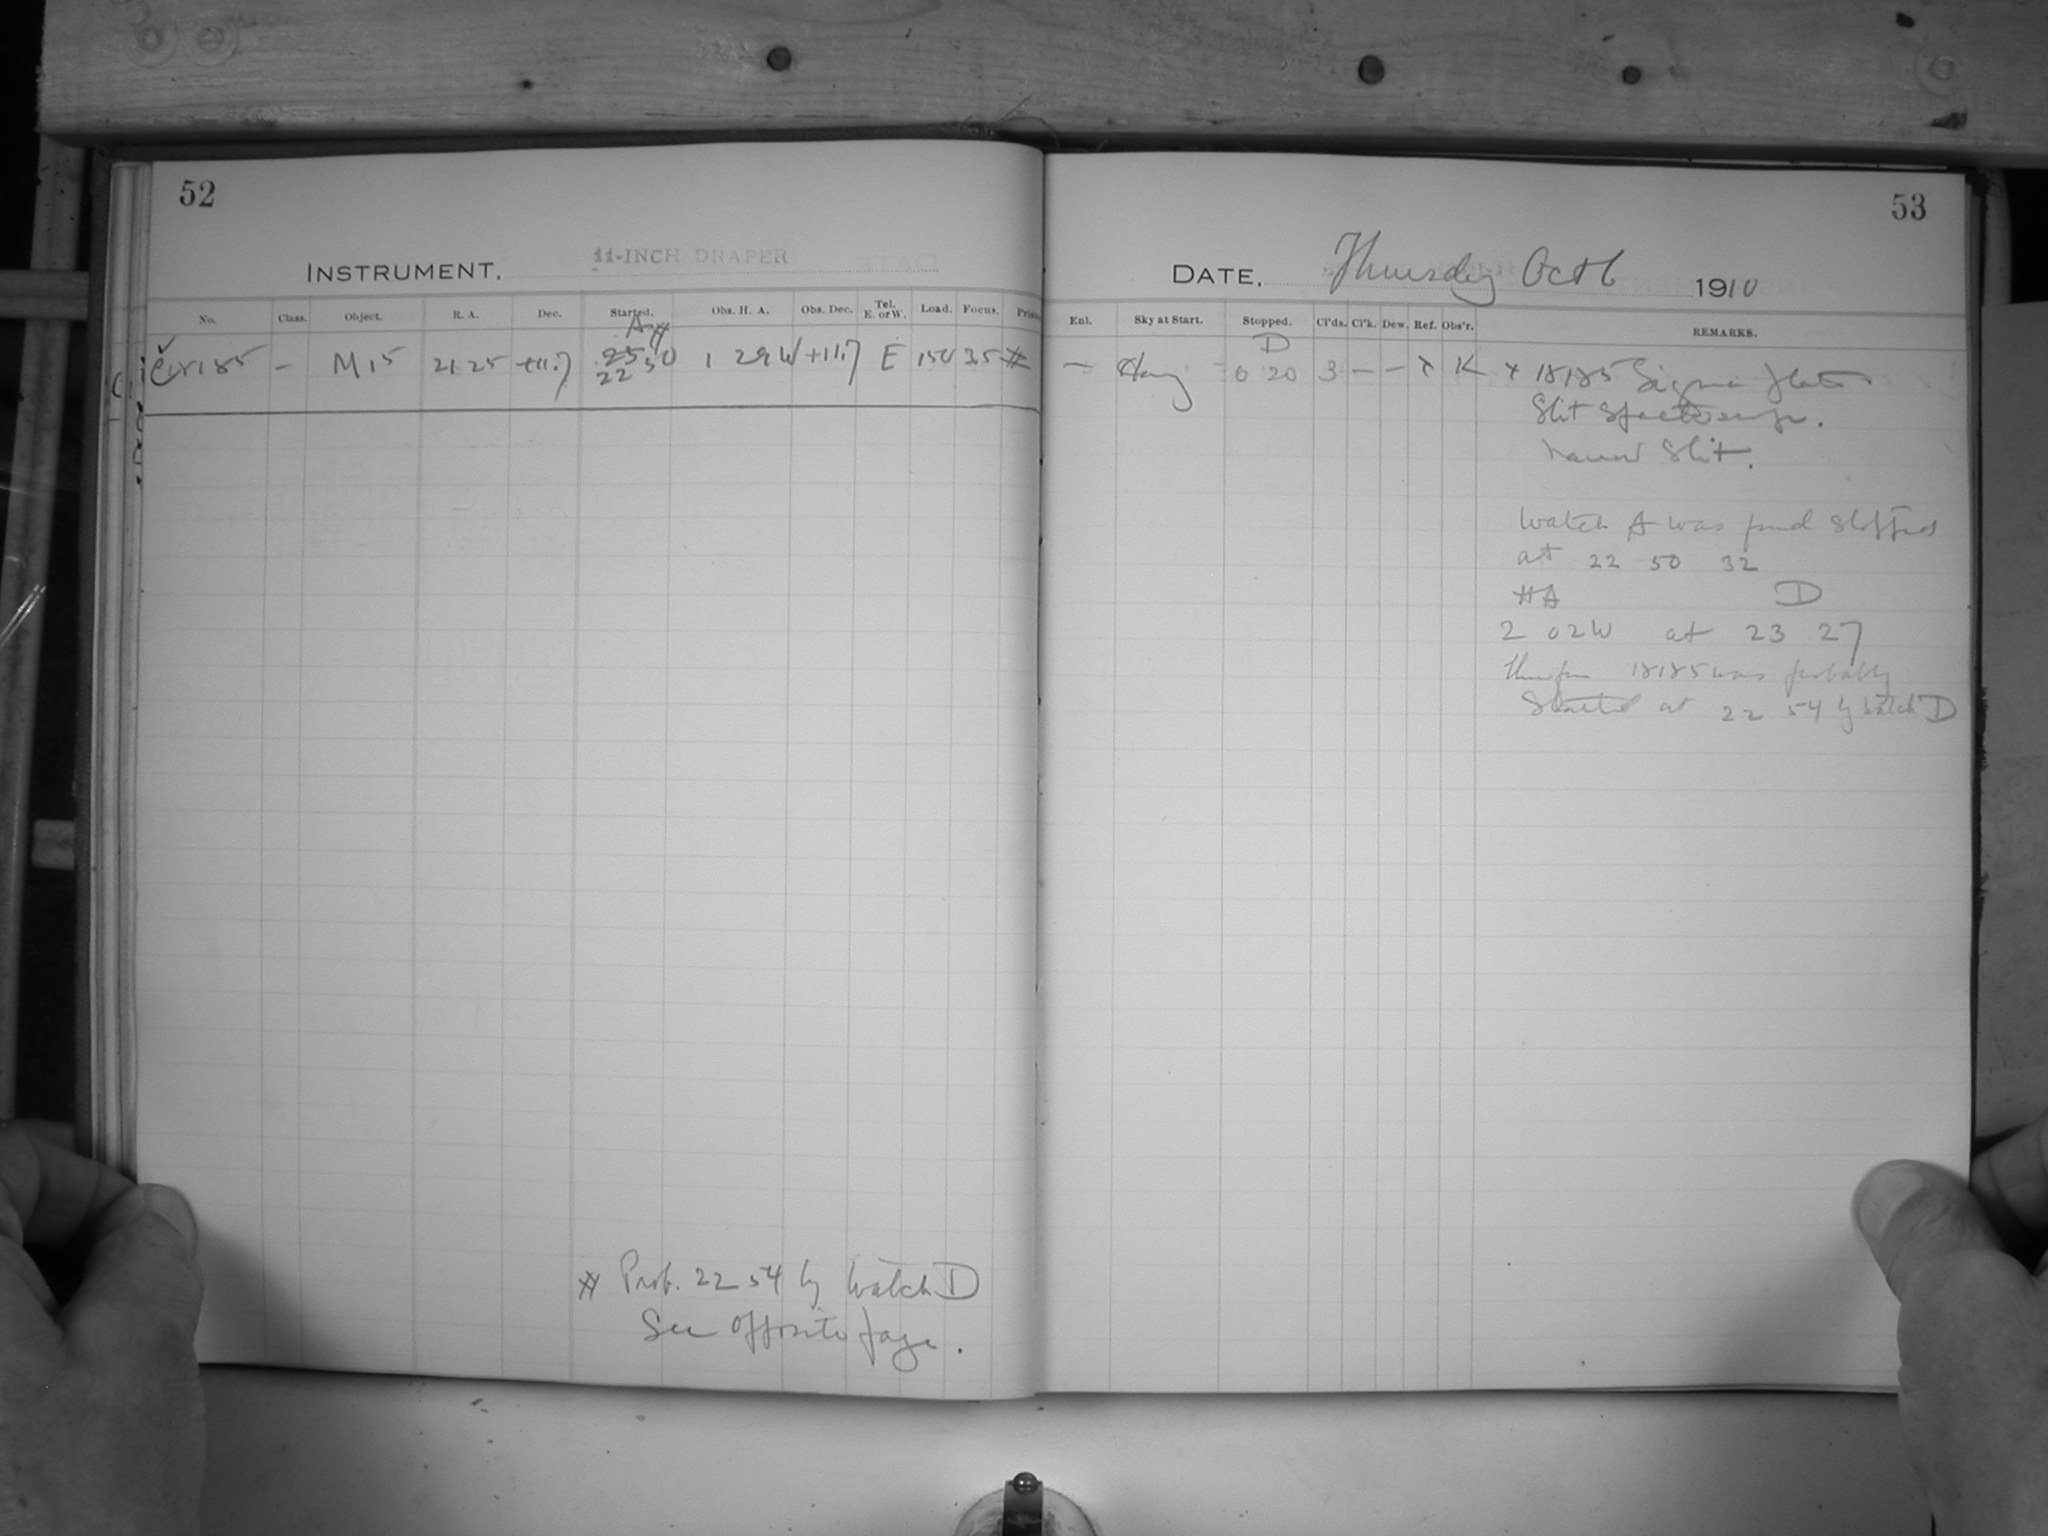 52
INSTRUMENT, 11-INCH DRAPER
No. Class. Object. R. A. Dec. Started. Obs. H. A. Obs. Dec. Tel. E. or W. Load. Focus.
A #
18185 - M 15 21 25 +11.7 22 50 1 29 W +11.7 E 150 3.5 *
# Prob. 22 54 by Watch D
See opposite page.
53
DATE, Thursday Oct 6 1910
Enl. Sky at Start. Stopped. Cl'ds. Cl'k. Dew. Ref. Obs'r. REMARKS.
D
— Hazy 0 20 3 — — K * 18185 Sigma plate
Slit Spectroscope.
narrow Slit.
Watch A was found stopped
at 22 50 32
HA D
2 02 W at 23 27
therefore 18185 was probably
Started at 22 54 by Watch D